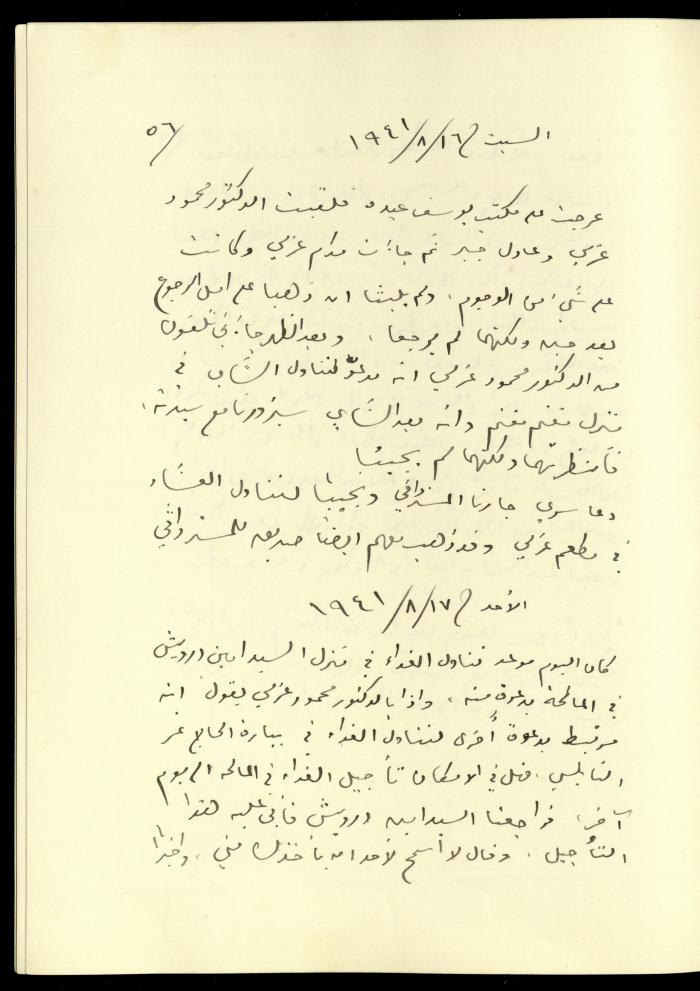 السبت في ١٩٤١/٨/١٦ ٥٦/
عرجت على مكتب يوسف عبده فلقيت الدكتور محمود
عزمي وعادل جبر ثم جاءت مدام عزمي وكانت
على شيء من الوجوم، ولم يلبثا ان ذهبا على امل الرجوع
بعد حين ولكنهما لم يرجعا، وبعد الظهر جاءني تلفون
من الدكتور محمود عزمي انه مدعوّ لتناول الشاي في
منزل مغنم مغنم وانه بعد الشاي سيزورنا مع سيدته،
فانتظرتهما ولكنهما لم يجيئا
دعا سري جارنا المسز وافي ويجيبنا لتناول العشاء
في مطعم عزمي وقد ذهب معهم ايضاً صديق للمسز وافي
الأحد في ١٩٤١/٨/١٧
كان اليوم موعد تناول الغداء في منزل السيد امين درويش
في المالحة بدعوة منه، واذا بالدكتور محمود عزمي يقول انه
مرتبط بدعوة أخرى لتناول الغداء في بيارة الحاج عمر
النابلسي، فهل في الامكان تأجيل الغداء في المالحه الى يوم
آخر، فراجعنا السيد امين درويش فأبى عليه هذا
التأجيل، وقال لا اسمح لأحد ان يأخذك مني، واخيراً